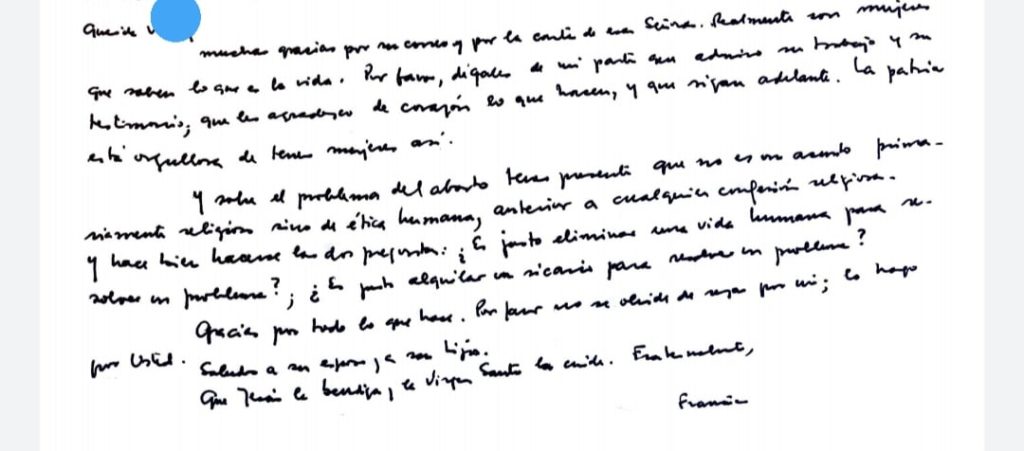 Querida V
muchas gracias por su correo y por la carta de esas Señoras. Realmente son mujeres
que saben lo que es la vida. Por favor, dígales de mi parte que admiro su trabajo y su
testimonio; que les agradezco de corazón lo que hacen, y que sigan adelante. La patria
está orgullosa de tener mujeres así.
Y sobre el problema del aborto tener presente que no es un asunto prima-
riamente religioso sino de ética humana, anterior a cualquier confesión religiosa.
Y hace bien hacerse las dos preguntas: ¿Es justo eliminar una vida humana para re-
solver un problema?; ¿Es justo alquilar un sicario para resolver un problema?
Gracias por todo lo que hace. Por favor no se olvide de rezar por mí; lo hago
por Usted. Saludos a su esposo y a sus hijos.
Que Jesús la bendiga y la Virgen Santa la cuide. Fraternalmente,
Francisco